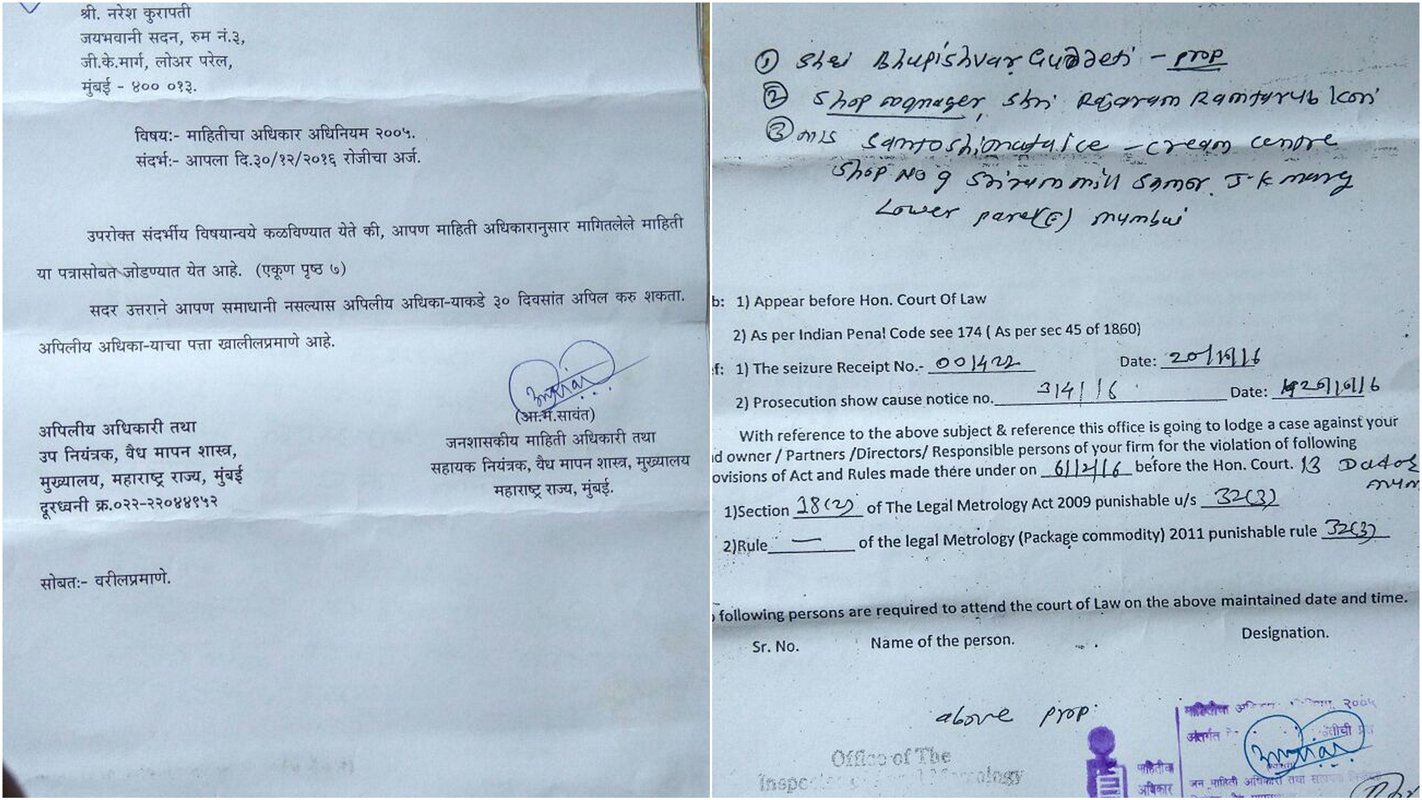 श्री. नरेश कुरापती
जयभवानी सदन, रुम नं.३,
जी.के.मार्ग, लोअर परेल,
मुंबई - ४०० ०१३.
विषय:- माहितीचा अधिकार अधिनियम २००५.
संदर्भ:- आपला दि.३०/१२/२०१६ रोजीचा अर्ज.
उपरोक्त संदर्भीय विषयान्वये कळविण्यात येते की, आपण माहिती अधिकारानुसार मागितलेले माहिती
या पत्रासोबत जोडण्यात येत आहे. (एकूण पृष्ठ ७)
सदर उत्तराने आपण समाधानी नसल्यास अपिलीय अधिका-याकडे ३० दिवसांत अपिल करु शकता.
अपिलीय अधिका-याचा पत्ता खालीलप्रमाणे आहे.
(आ.मं.सावंत)
जनशासकीय माहिती अधिकारी तथा
सहायक नियंत्रक, वैध मापन शास्त्र, मुख्यालय
महाराष्ट्र राज्य, मुंबई.
अपिलीय अधिकारी तथा
उप नियंत्रक, वैध मापन शास्त्र,
मुख्यालय, महाराष्ट्र राज्य, मुंबई
दूरध्वनी क्र.०२२-२२०४४९५२
सोबत:- वरीलप्रमाणे.
① Shri Bhupishvar Guddeti - prop
② Shop manager, Shri Rajaram Ramtarub Kori
③ M/s Santoshimata Ice - cream centre
Shop No 9 Sriram mill Samor. J-K marg
Lower parel(E) mumbai
b: 1) Appear before Hon. Court Of Law
2) As per Indian Penal Code see 174 ( As per sec 45 of 1860)
f: 1) The seizure Receipt No.- 001422 Date: 20/10/16
2) Prosecution show cause notice no. 314/16 Date: 20/10/16
With reference to the above subject & reference this office is going to lodge a case against your
d owner / Partners /Directors/ Responsible persons of your firm for the violation of following
ovisions of Act and Rules made there under on 6/2/16 before the Hon. Court. 13 Dadar
mum
1)Section 18(2) of The Legal Metrology Act 2009 punishable u/s 32(3)
2)Rule — of the legal Metrology (Package commodity) 2011 punishable rule 32(3)
following persons are required to attend the court of Law on the above maintained date and time.
Sr. No. Name of the person. Designation.
above prop.
Office of The
Metrology
माहितीचा २००५
अंतर्गत
माहितीचा
अधिकार
जन माहिती अधिकारी तथा